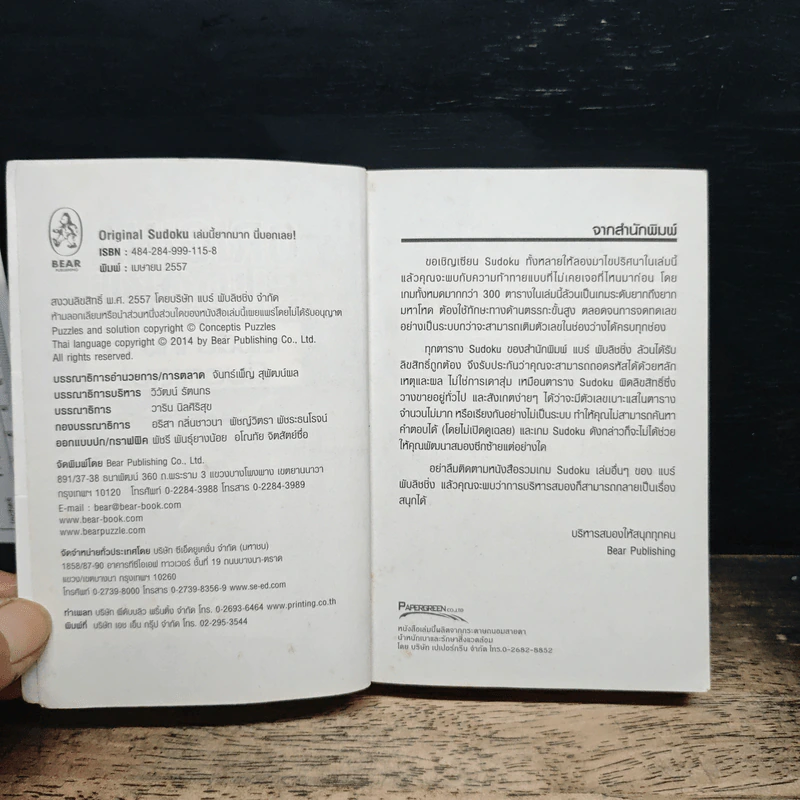 BEAR
PUBLISHING
Original Sudoku เล่มนี้ยากมาก นี่บอกเลย!
ISBN : 484-284-999-115-8
พิมพ์ : เมษายน 2557
สงวนลิขสิทธิ์ พ.ศ. 2557 โดยบริษัท แบร์ พับลิชชิ่ง จำกัด
ห้ามลอกเลียนหรือนำส่วนหนึ่งส่วนใดของหนังสือเล่มนี้เผยแพร่โดยไม่ได้รับอนุญาต
Puzzles and solution copyright © Conceptis Puzzles
Thai language copyright © 2014 by Bear Publishing Co., Ltd.
All rights reserved.
บรรณาธิการอำนวยการ/การตลาด จันทร์เพ็ญ สุพัฒน์พล
บรรณาธิการบริหาร วิวัฒน์ รัตนกร
บรรณาธิการ วาริน นิลศิริสุข
กองบรรณาธิการ อริสา กลิ่นชาวนา พัชญ์วิตรา พัชระธนโรจน์
ออกแบบปก/กราฟฟิค พัชรี พันธุ์ยางน้อย อโณทัย จิตสัตย์ซื่อ
จัดพิมพ์โดย Bear Publishing Co., Ltd.
891/37-38 ธนาพัฒน์ 360 ถ.พระราม 3 แขวงบางโพงพาง เขตยานนาวา
กรุงเทพฯ 10120 โทรศัพท์ 0-2284-3988 โทรสาร 0-2284-3989
E-mail : bear@bear-book.com
www.bear-book.com
www.bearpuzzle.com
จัดจำหน่ายทั่วประเทศโดย บริษัท ซีเอ็ดยูเคชั่น จำกัด (มหาชน)
1858/87-90 อาคารทีซีไอเอฟ ทาวเวอร์ ชั้นที่ 19 ถนนบางนา-ตราด
แขวง/เขตบางนา กรุงเทพฯ 10260
โทรศัพท์ 0-2739-8000 โทรสาร 0-2739-8356-9 www.se-ed.com
ทำเพลท บริษัท พีดับบลิว พริ้นติ้ง จำกัด โทร. 0-2693-6464 www.printing.co.th
พิมพ์ที่ บริษัท เอช เอ็น กรุ๊ป จำกัด โทร. 02-295-3544
จากสำนักพิมพ์
ขอเชิญเซียน Sudoku ทั้งหลายให้ลองมาไขปริศนาในเล่มนี้
แล้วคุณจะพบกับความท้าทายแบบที่ไม่เคยเจอที่ไหนมาก่อน โดย
เกมทั้งหมดมากกว่า 300 ตารางในเล่มนี้ล้วนเป็นเกมระดับยากถึงยาก
มหาโหด ต้องใช้ทักษะทางด้านตรรกะขั้นสูง ตลอดจนการจดทดเลข
อย่างเป็นระบบกว่าจะสามารถเติมตัวเลขในช่องว่างได้ครบทุกช่อง
ทุกตาราง Sudoku ของสำนักพิมพ์ แบร์ พับลิชชิ่ง ล้วนได้รับ
ลิขสิทธิ์ถูกต้อง จึงรับประกันว่าคุณจะสามารถถอดรหัสได้ด้วยหลัก
เหตุและผล ไม่ใช่การเดาสุ่ม เหมือนตาราง Sudoku ผิดลิขสิทธิ์ซึ่ง
วางขายอยู่ทั่วไป และสังเกตง่ายๆ ได้ว่าจะมีตัวเลขเบาะแสในตาราง
จำนวนไม่มาก หรือเรียงกันอย่างไม่เป็นระบบ ทำให้คุณไม่สามารถค้นหา
คำตอบได้ (โดยไม่เปิดดูเฉลย) และเกม Sudoku ดังกล่าวก็จะไม่ได้ช่วย
ให้คุณพัฒนาสมองซีกซ้ายแต่อย่างใด
อย่าลืมติดตามหนังสือรวมเกม Sudoku เล่มอื่นๆ ของ แบร์
พับลิชชิ่ง แล้วคุณจะพบว่าการบริหารสมองก็สามารถกลายเป็นเรื่อง
สนุกได้
บริหารสมองให้สนุกทุกคน
Bear Publishing
PAPERGREEN CO.,LTD
หนังสือเล่มนี้ผลิตจากกระดาษถนอมสายตา
น้ำหนักเบาและรักษาสิ่งแวดล้อม
โดย บริษัท เปเปอร์กรีน จำกัด โทร.0-2682-8852